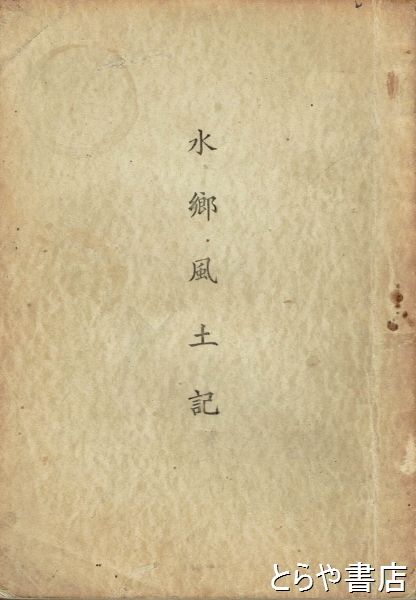 水鄉風土記
とらや書店